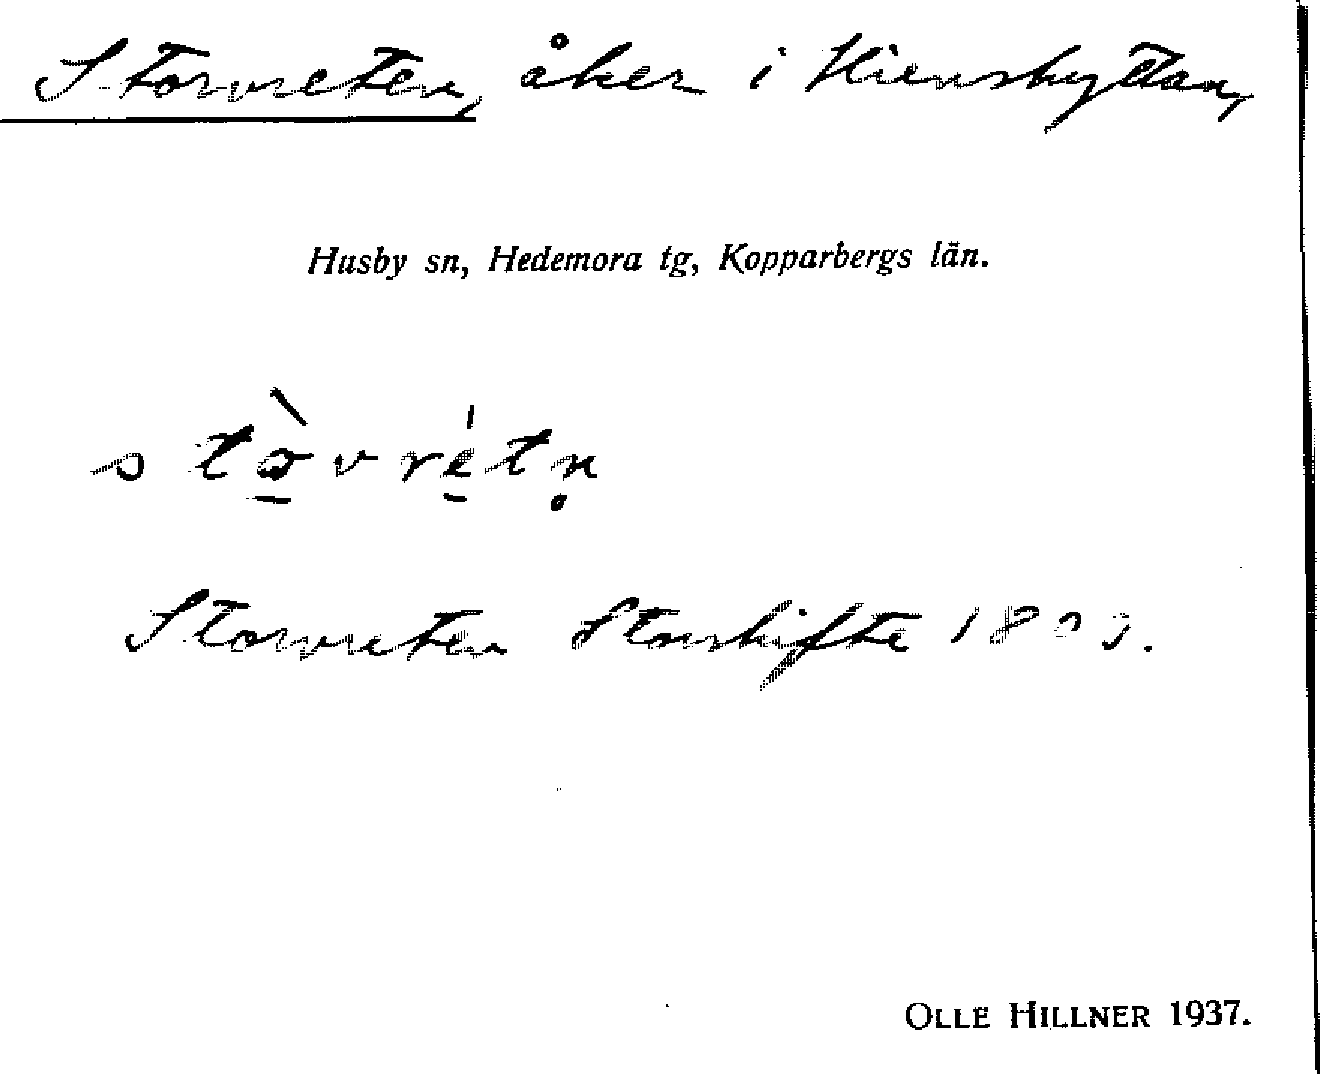 Storvreten, åker i Hienshyttan,
Husby sn, Hedemora tg, Kopparbergs län.
Storvreten Storskifte
OLLE HILLNER 1937.